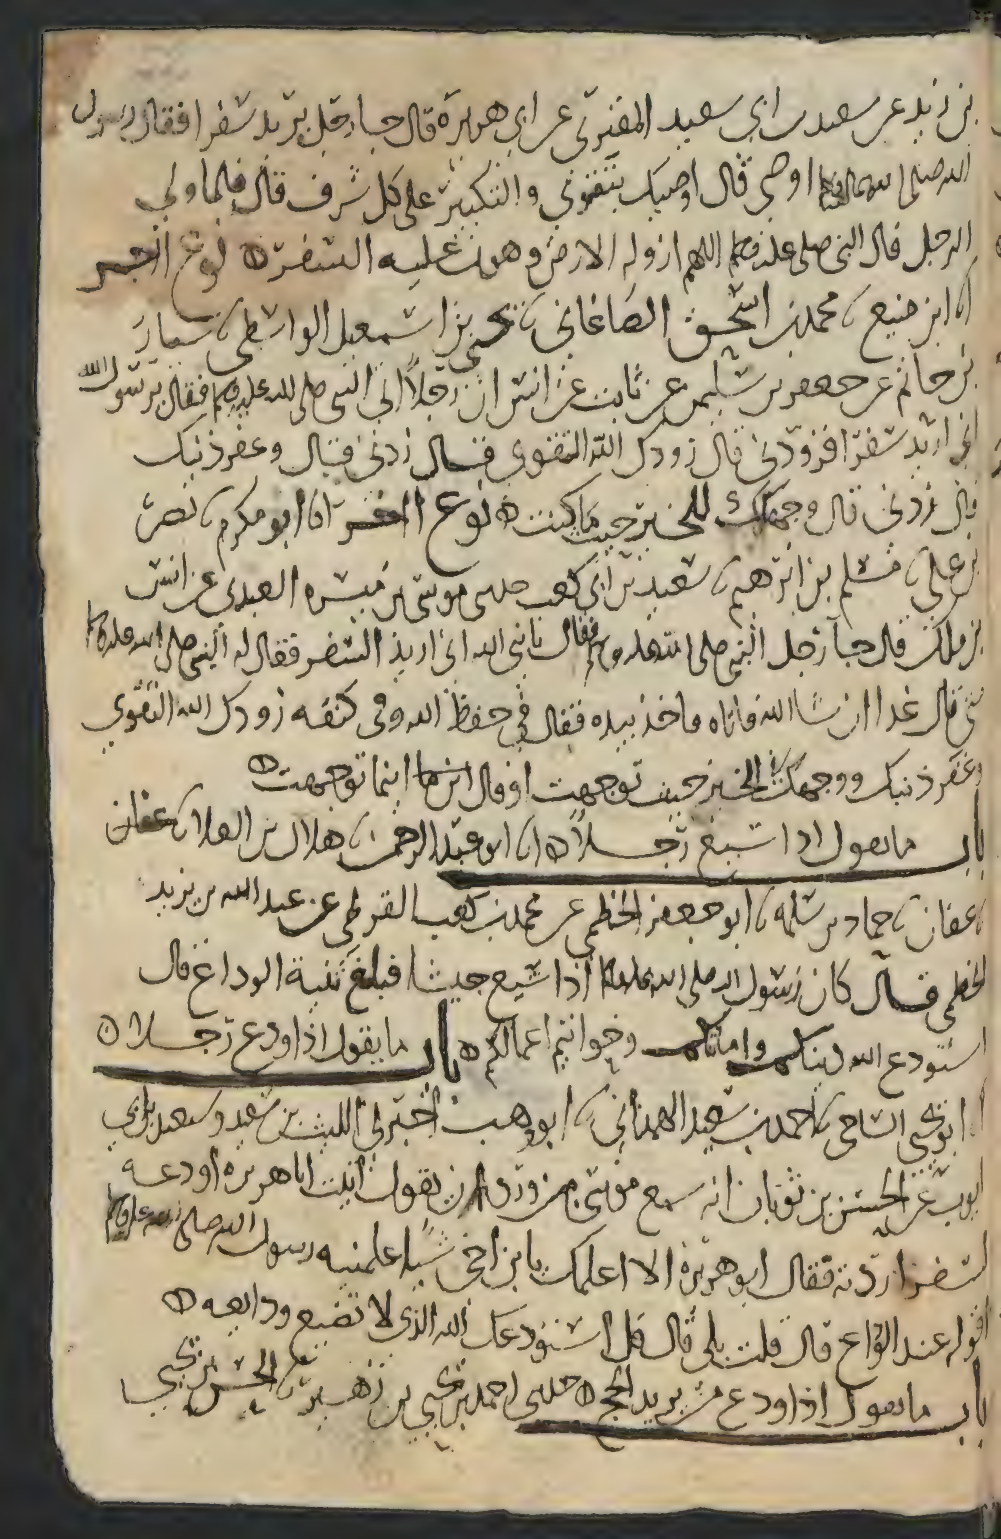 بن زيد عن سعيد بن ابي سعيد المقبري عن ابي هريرة قال جا رجل يريد سفرا فقال يرسول
الله صلى الله عليه وسلم اوصني قال اوصيك بتقوى والتكبير على كل شرف قال فلما ولى
الرجل قال النبي صلى الله عليه وسلم اللهم ازو له الارض وهون عليه السفره نوع اخر
انا ابن منيع محمد بن اسحق الصاغاني يحيى بن اسمعيل الواسطي سيار
بن حاتم عن جعفر بن سليمن عن ثابت عن انس ان رجلا اتى النبي صلى الله عليه وسلم فقال يرسول الله
اني اريد سفرا فزودني قال زودك الله التقوى فقال زدني فقال وغفر ذنبك
قال زدني قال وجهك للخير حيث ما كنت ه نوع اخر انا ابو مكرم نصر
بن علي مسلم بن ابرهيم سعيد بن ابي كعب حدثني موسى بن ميسره العبدي عن انس
بن ملك قال جآ رجل النبي صلى الله عليه وسلم فقال يا نبي الله اني اريد السفر فقال له النبي صلى الله عليه وسلم
متى قال غدا ان شا الله فاتاه فاخذ بيده فقال في حفظ الله وفي كنفه زودك الله التقوى
وغفر ذنبك ووجهك للخير حيث توجهت او قال اينما توجهت ه
باب ما يقول اذا شيع رجلا ه انا ابو عبد الرحمن هلال بن العلا عفان
عفان حماد بن سلمه ابو جعفر الخطمي عن محمد بن كعب القرظي عن عبد الله بن يزيد
الخطمي قال كان رسول الله صلى الله عليه وسلم اذا شيع جيشا فبلغ ثنية الوداع قال
استودع الله دينكم وامانتكم وخواتيم اعمالكم ه باب ما يقول اذا ودع رجلا ه
انا ابو يحيى الساجي احمد بن سعيد الهمداني ابو وهب اخبرني الليث بن سعيد وسعيد بن ابي
ايوب عن الحسن بن ثوبان انه سمع موسى بن وردان يقول اتيت ابا هريره اودعه
لسفر اردته فقال ابو هريرة الا اعلمك يا بن اخي شيا علمنيه رسول الله صلى الله عليه وسلم
اقوله عند الوداع قال قلت بلى قال قل استودعك الله الذي لا تضيع ودايعه ه
باب ما يقول اذا ودع من يريد الحج ه حدثني احمد بن يحيى بن زهير الحسن بن يحيى